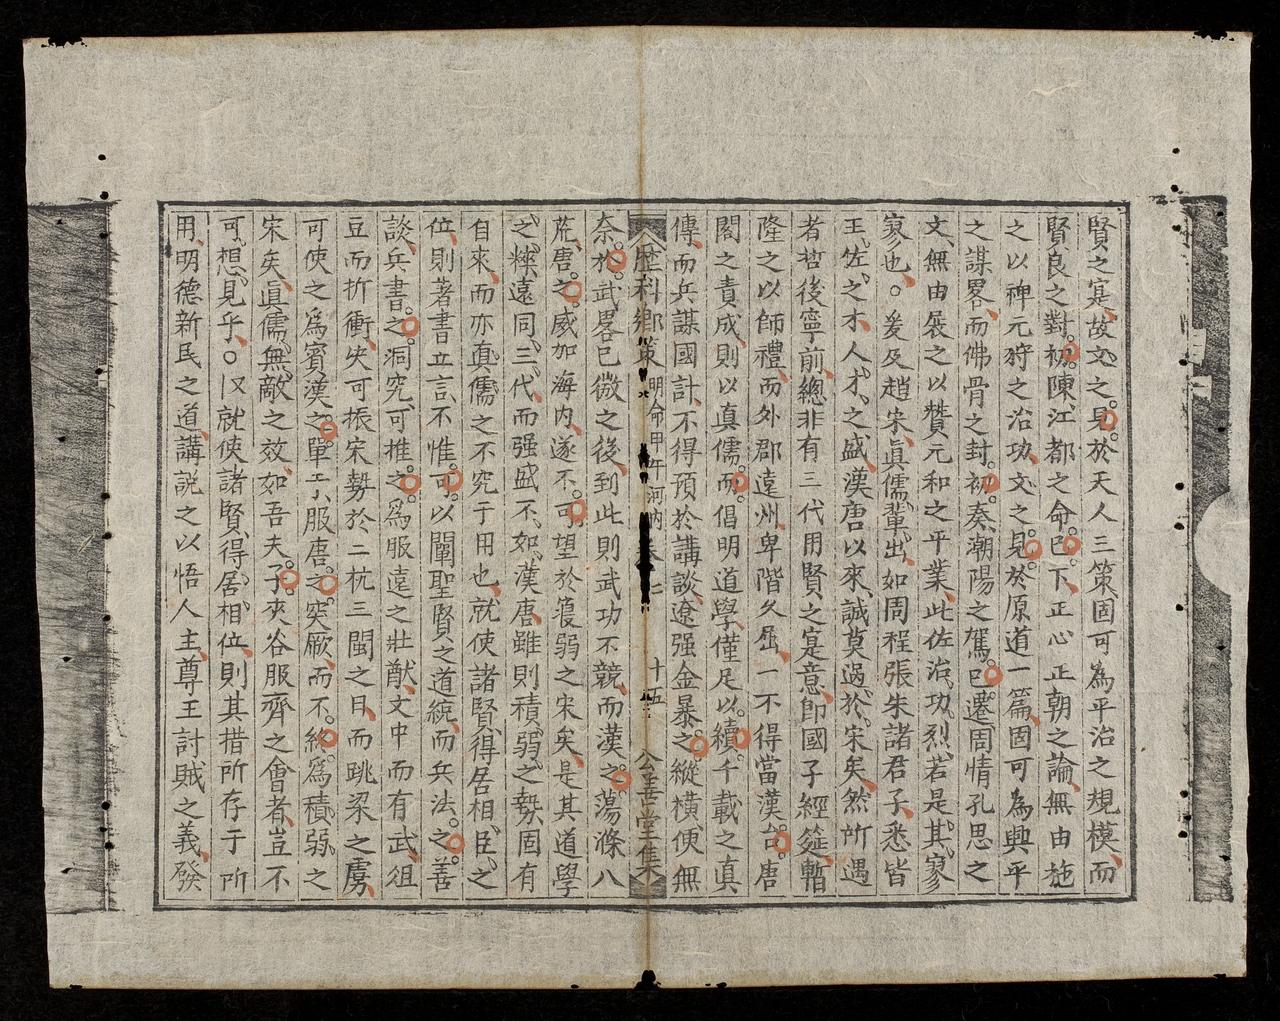 賢之寘故文之見於天人三策固可為平治之規模而
賢良之對初陳江都之命已下正心正朝之論無由施
之以裨元狩之治功文之見於原道一篇固可為興平
之謀畧而佛骨之封初奏潮陽之駕已遷周情孔思之
文無由展之以贊元和之平業此佐治功烈若是其寥
寥也○爰及趙宋真儒輩出如周程張朱諸君子悉皆
王佐之才人才之盛漢唐以來誠莫過於宋矣然所遇
者哲後寧前總非有三代用賢之寔意即國子經筵暫
隆之以師禮而外郡遠州卑階久屈一不得當漢台唐
閣之責成則以真儒而倡明道學僅足以續千載之真
傳而兵謀國計不得預於講談遼强金暴之縱橫便無
歷科鄉策 明命甲午河內 卷 十五 公善堂集
奈於武畧已微之後到此則武功不競而漢之蕩滌八
荒唐之威加海內遂不可望於萎弱之宋矣是其道學
之粹遠同三代而强盛不如漢唐雖則積弱之勢固有
自來而亦真儒之不究于用也就使諸賢得居相臣之
位則著書立言不惟可以闡聖賢之道統而兵法之善
談兵書之洞究可推之為服遠之壯猷文中而有武俎
豆而折衝失可振宋勢於二杭三閩之日而跳梁之虜
可使之為賓漢之單于服唐之突厥而不終為積弱之
宋矣真儒無敵之效如吾夫子夾谷服齊之會者豈不
可想見乎○又就使諸賢得居相位則其措所存于所
用明德新民之道講說之以悟人主尊王討賊之義發